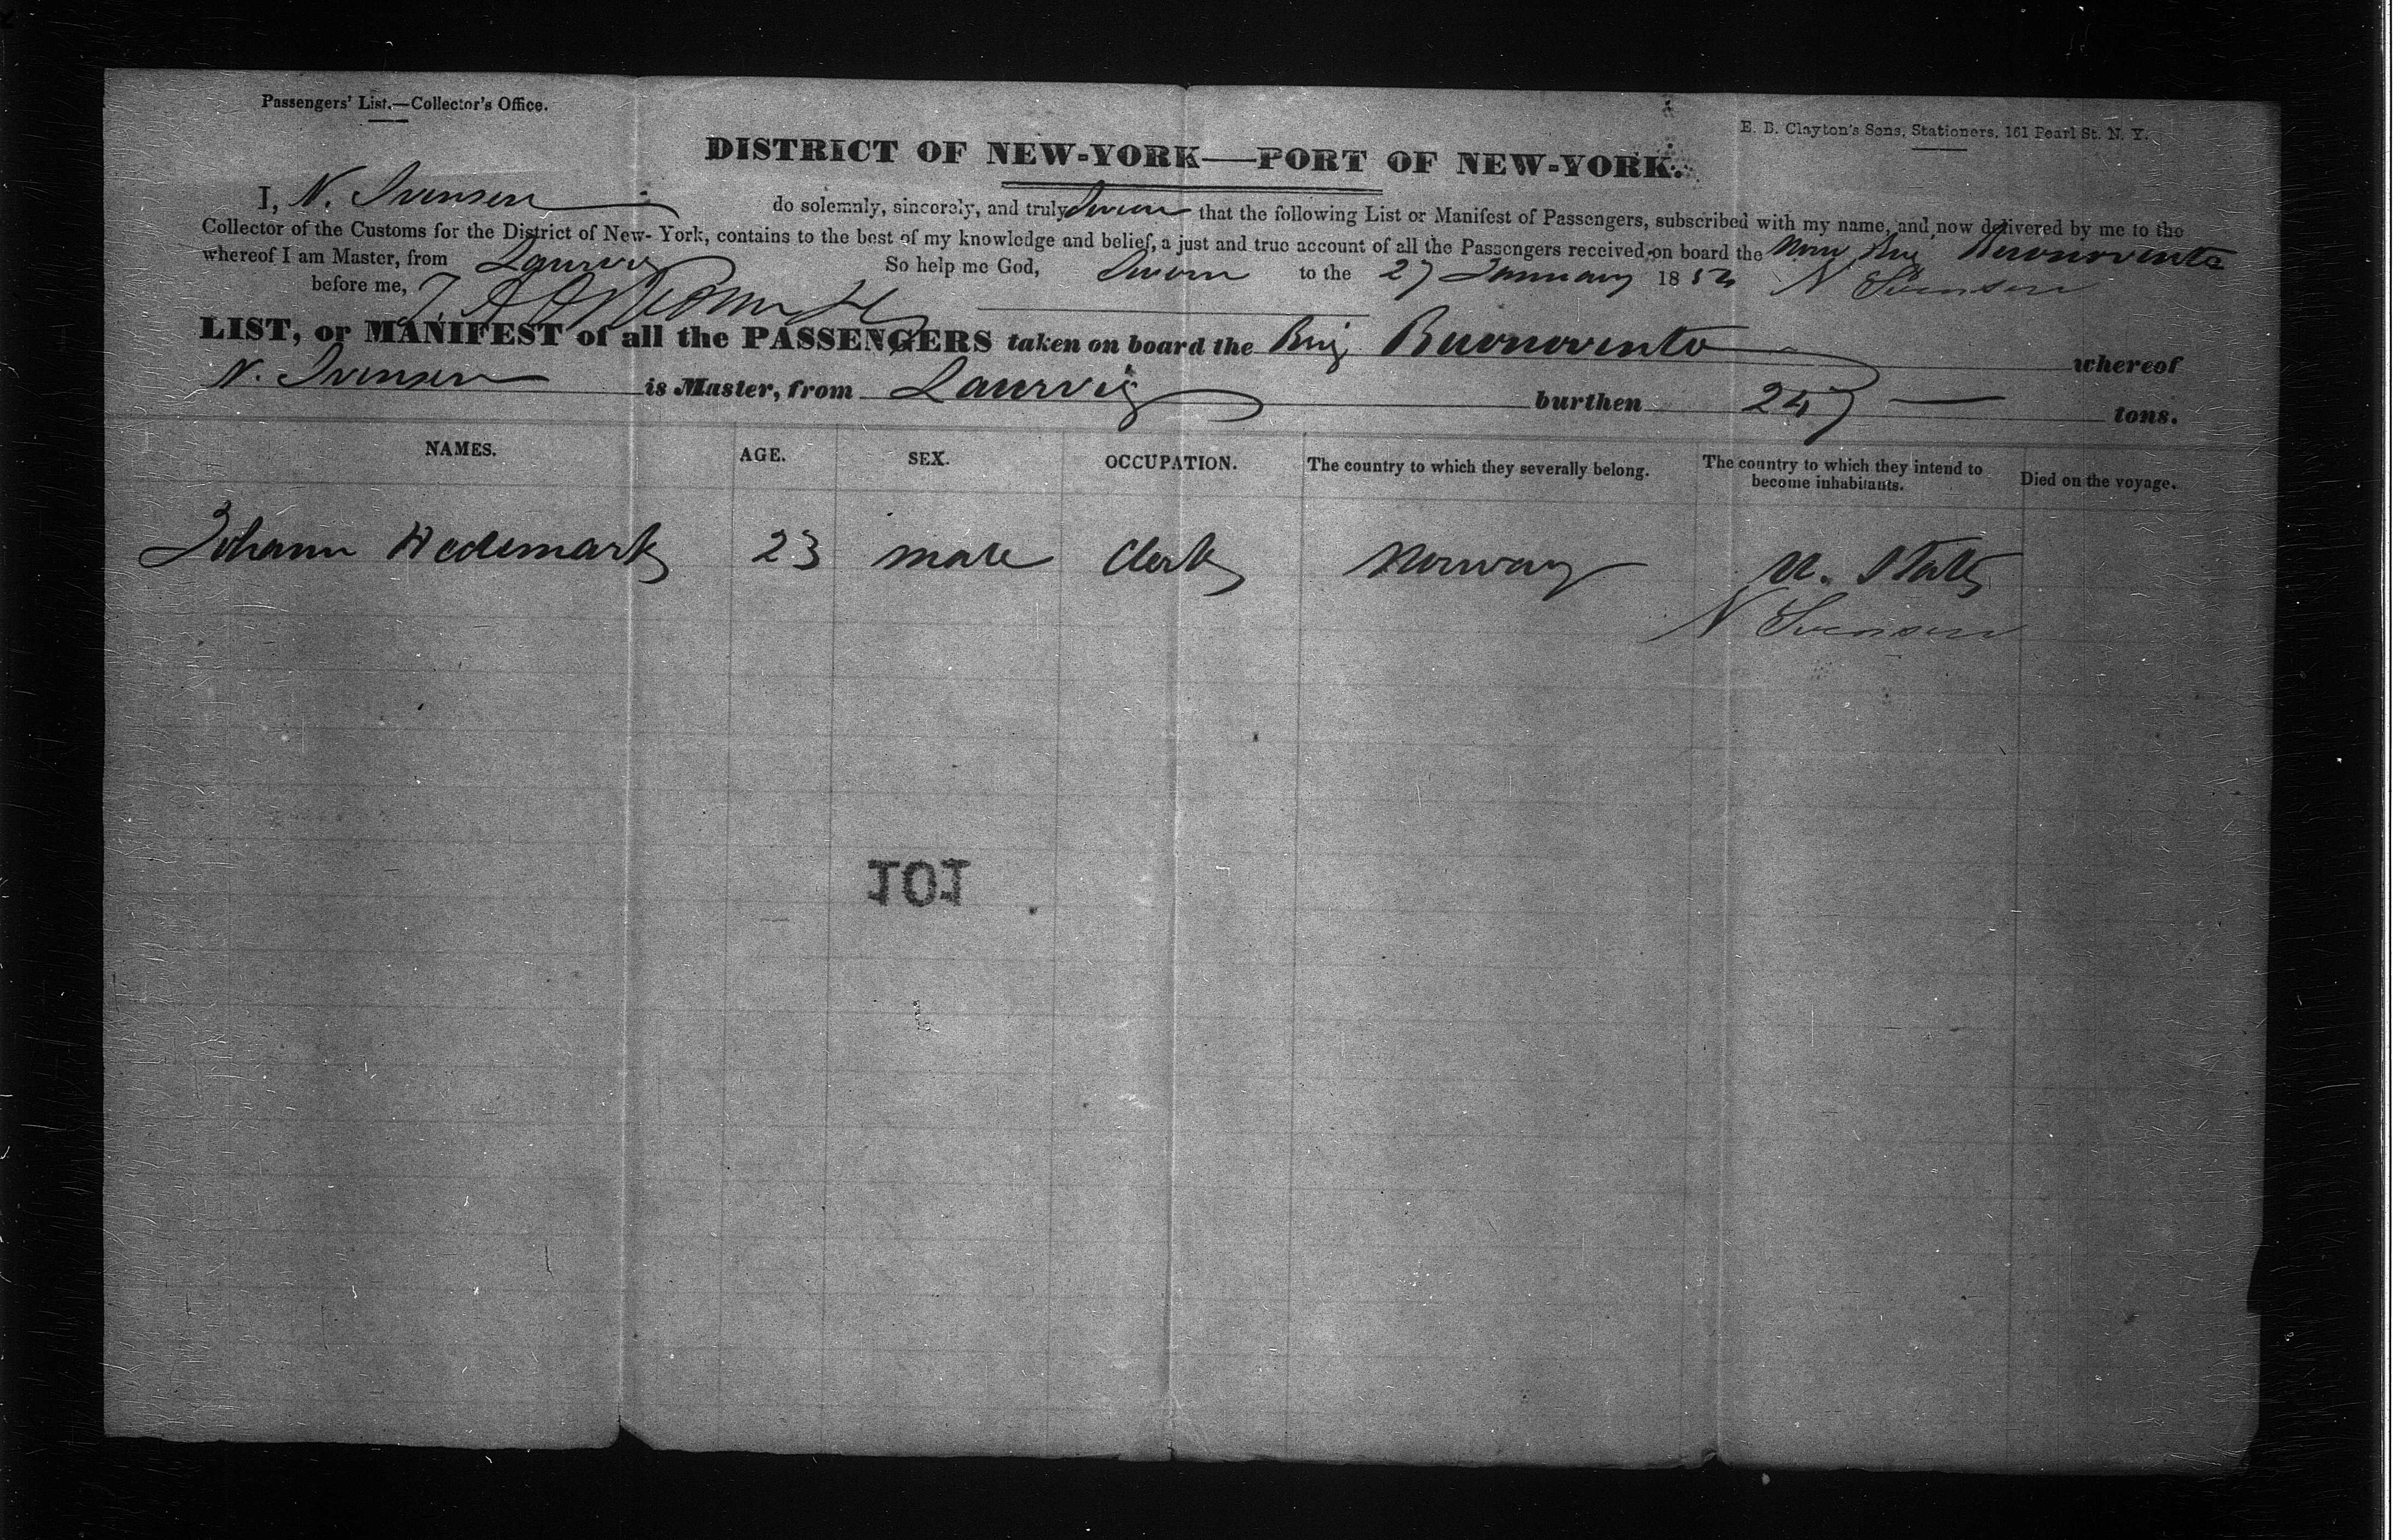 Passengers' List.—Collector's Office.
E. B. Clayton's Sons, Stationers, 161 Pearl St. N. Y.
DISTRICT OF NEW-YORK—PORT OF NEW-YORK.
I, N. Svensen do solemnly, sincerely, and truly Swear that the following List or Manifest of Passengers, subscribed with my name, and now delivered by me to the
Collector of the Customs for the District of New-York, contains to the best of my knowledge and belief, a just and true account of all the Passengers received on board the Norw Brig Buonovento
whereof I am Master, from Laurvig So help me God, Sworn to the 27 January 1852 N Svensen
before me,
LIST, or MANIFEST of all the PASSENGERS taken on board the Brig Buonovento whereof
N. Svensen is Master, from Laurvig burthen 247 — tons.
NAMES. AGE. SEX. OCCUPATION. The country to which they severally belong. The country to which they intend to become inhabitants. Died on the voyage.
Johann Hedemark 23 male Clerk Norway U. States
N Svensen
101